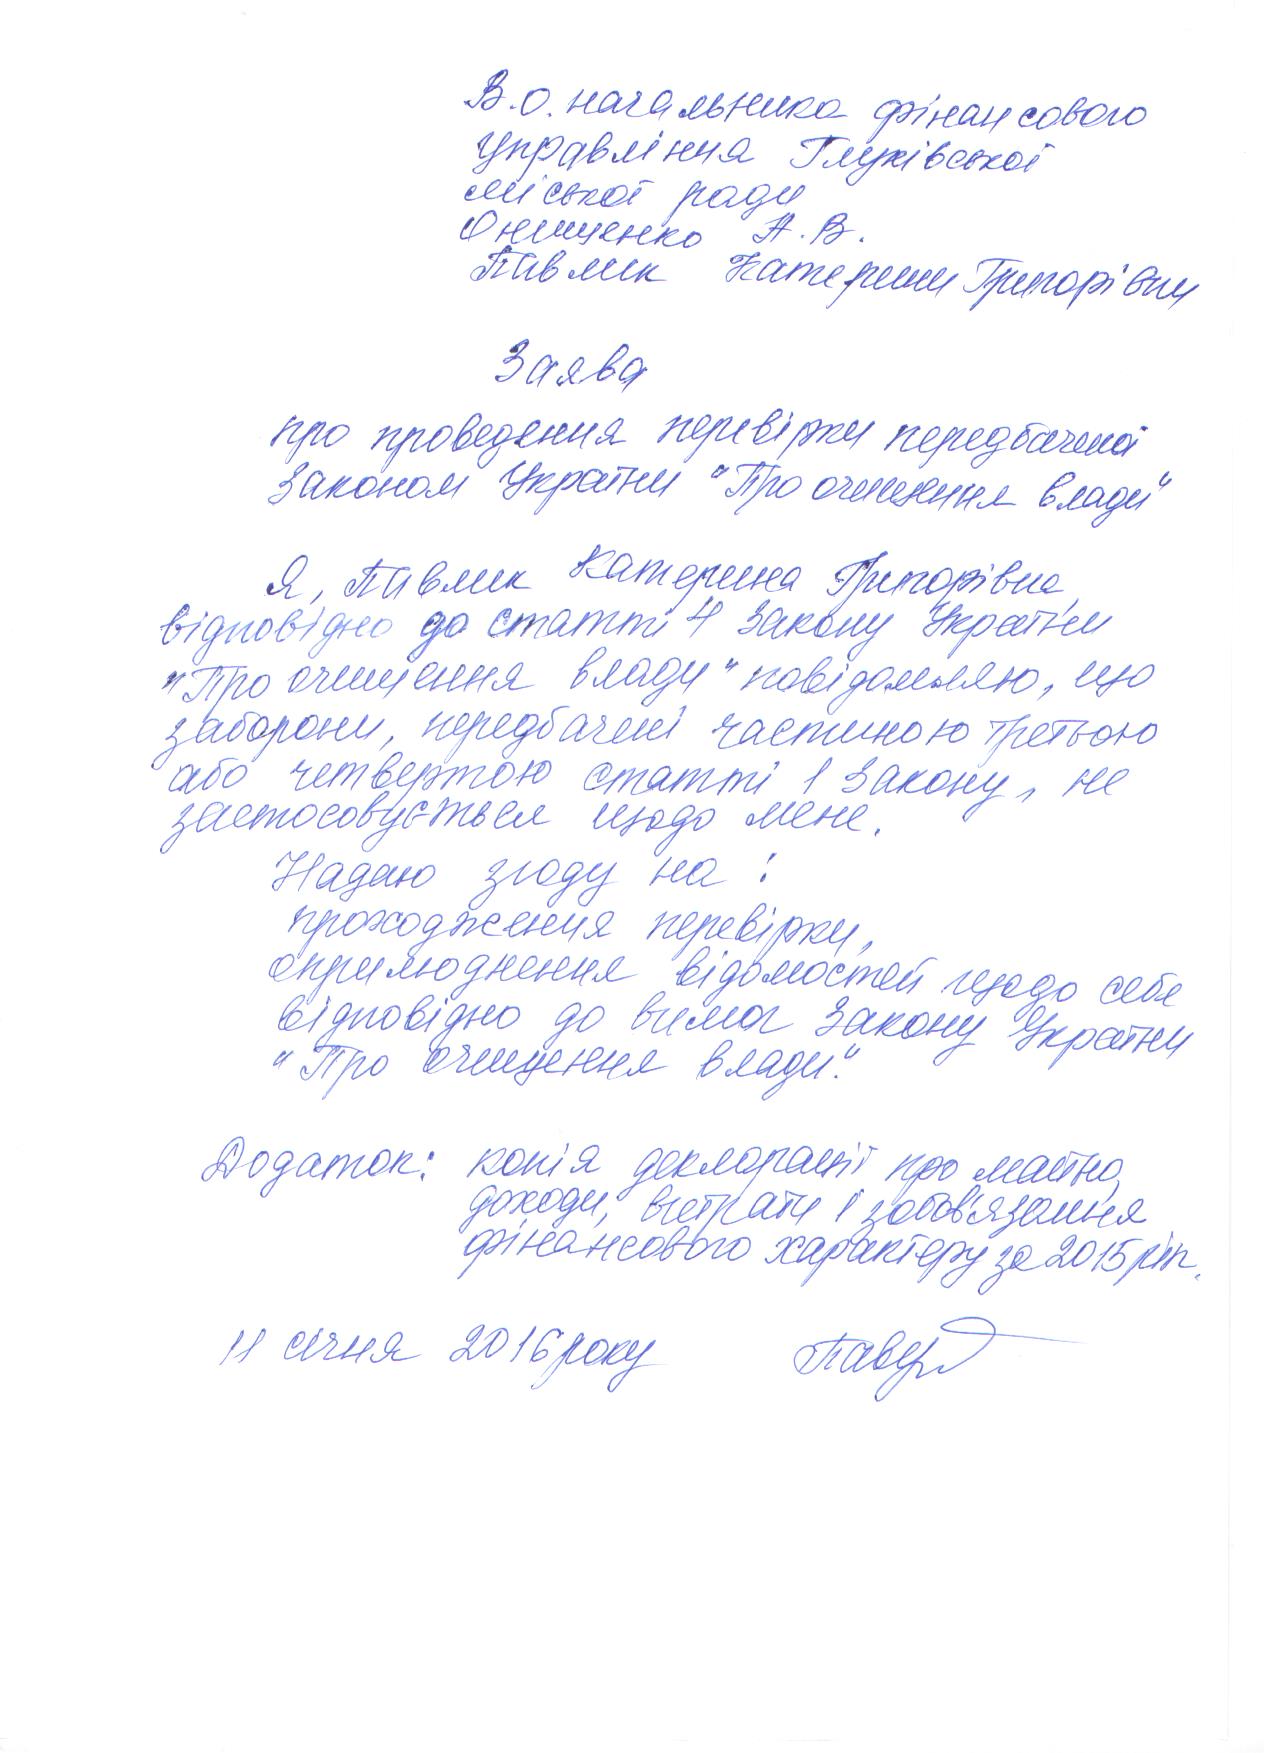 В.о. начальника фінансового
управління Глухівської
міської ради
Онищенко А.В.
Павлик Катерини Григорівни
Заява
про проведення перевірки передбаченої
Законом України "Про очищення влади"
Я, Павлик Катерина Григорівна,
відповідно до статті 4 Закону України
"Про очищення влади" повідомляю, що
заборони, передбачені частиною третьою
або четвертою статті 1 Закону, не
застосовується щодо мене.
Надаю згоду на:
проходження перевірки,
оприлюднення відомостей щодо себе
відповідно до вимог Закону України
"Про очищення влади".
Додаток: копія декларації про майно,
доходи, витрати і зобов'язання
фінансового характеру за 2015 рік.
11 січня 2016 року